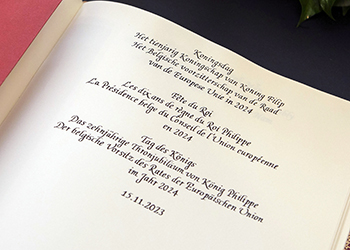 Koningsdag
Het tienjarig Koningschap van Koning Filip
Het Belgische voorzitterschap van de Raad
van de Europese Unie in 2024
Fête du Roi
Les diX ans de règne du Roi Philippe
La Présidence belge du Conseil de l'Union européenne
en 2024
Tag des Königs
Das zehnjährige Thronjubilaum von König Philippe
Der belgische Vorsitz des Rates der Europäischen Union
im Jahr 2024
15.11.2023